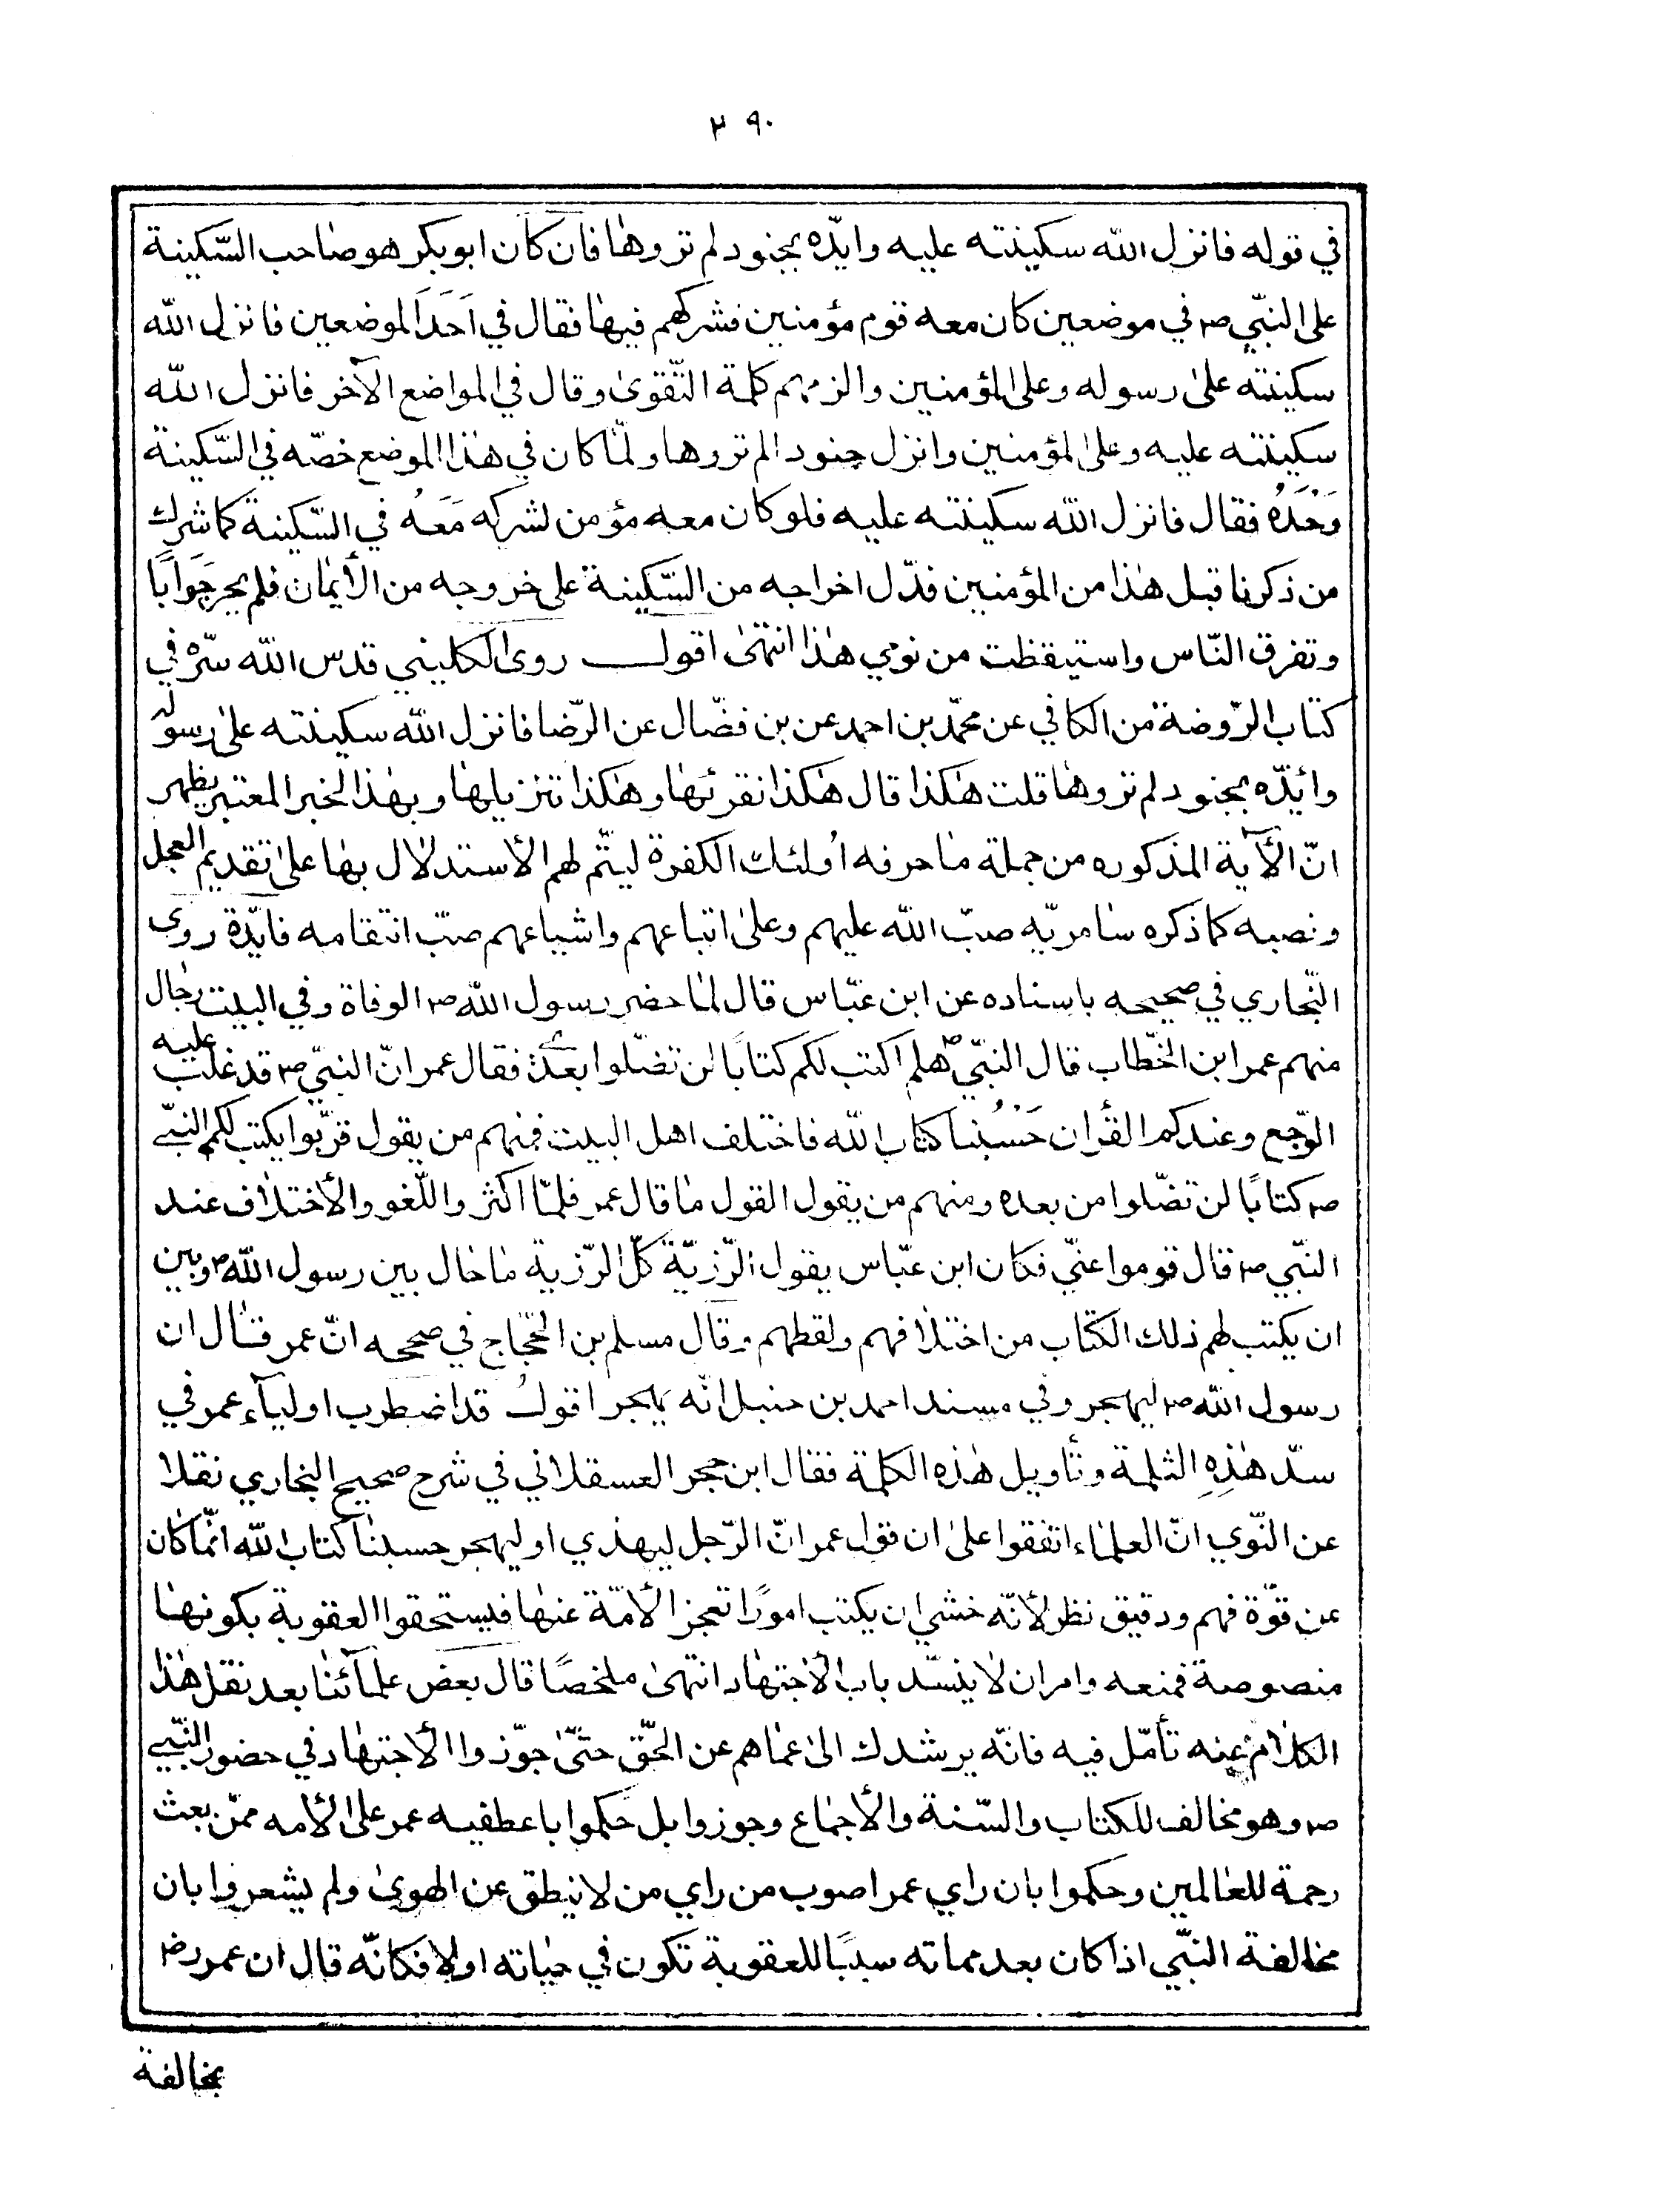 ٣٩٠
في قوله فانزل الله سكينته عليه وايّده بجنود لم تروها فان كان ابوبكر هو صاحب السّكينة
على النبّي ص في موضعين كان معه قوم مؤمنين فشركهم فيها فقال في اَحَدَ الموضعين فانزل الله
سكينته على رسوله وعلى المؤمنين والزمهم كلمة التّقوى وقال في المواضع الآخر فانزل الله
سكينته عليه وعلى المؤمنين وانزل جنودا لم تروها ولمّا كان في هذا الموضع خصّه في السّكينة
وَحْدَهُ فقال فانزل الله سكينته عليه فلو كان معه مؤمن لشركه مَعَهُ في السّكينة كما شرك
من ذكرنا قبل هذا من المؤمنين فدّل اخراجه من السّكينة على خروجه من الأيمان فلم يحر جَوَابًا
وتفرق النّاس واستيقظت من نومي هذا انتهى اقول روى الكليني قدس الله سّره في
كتاب الرّوضة من الكافي عن محمّد بن احمد عن بن فضّال عن الرّضا فانزل الله سكينته على رسوله
وائيّده بجنود لم تروها قلت هكذا قال هكذا نقرئها وهكذا تنزيلها وبهذا الخبر المعتبر يظهر
انّ الأية المذكوره من جملة ما حرفه اُولئك الكفرة ليتّم لهم الأستدلال بها على تقديم العجل
ونصبه كما ذكره سامريّه صبّ الله عليهم وعلى اتباعهم واشياعهم صبّ انتقامه فايّدة روى
البّخاري في صحيحه باسناده عن ابن عبّاس قال لما حضر رسول الله ص الوفاة وفي البيت رجال
منهم عمر ابن الخّطاب قال النبّي ص هلم اكتب لكم كتابًا لن تضّلوا بعدي فقال عمر انّ النبّي ص قد غلب عليه
الوّجع وعندكم القرأن حَسْبُنا كتاب الله فاختلف اهل البيت فمنهم من يقول قرّبوا يكتب لكم النبّي
ص كتابًا لن تضّلوا من بعده ومنهم من يقول القول ما قال عمر فلمّا اكثر واللّغو والأختلاف عند
النبّي ص قال قوموا عنّي فكان ابن عبّاس يقول الرّزيّة كلّ الرّزية ما حال بين رسول الله ص وبين
ان يكتب لهم ذلك الكتّاب من اختلافهم ولقطهم وقال مسلم بن الحّجاج في صححه انّ عمر قال ان
رسول الله ص ليهجر وفي مسند احمد بن حنبل انّه يهجر اقولُ قد اضطرب اولياء عمر في
سدّ هذِهِ الثلمة وتأويل هذه الكلمة فقال ابن حجر العسقلاني في شرح صحيح البخاري نقلا
عن النّوي انّ العلماء اتفقوا على ان قول عمر انّ الرّجل ليهذي او ليهجر حسبنا كتاب الله انّما كان
عن قوّة فهم ودقيق نظر لأنّه خشي ان يكتب امورًا تعجز الأمّة عنها فيستحقوا العقوبة بكونها
منصوصة فمنعه وامر ان لا ينسّد باب الأجتهاد انتهى ملخصًا قال بعض علمآئنا بعد نقل هذا
الكلام عنه تأمّل فيه فانّه يرشدك الى عماهم عن الحّق حتّى جوّزوا الأجتهاد في حضور النبّي
ص وهو مخالف للكتاب والسّنة والأجماع وجوزوا بل حكموا باعطفيه عمر على الأمه ممّن بعث
رحمة للعالمين وحكموا بان راي عمر اصوب من راي من لا ينطق عن الهوى ولم يشعروا بان
مخالفة النبّي اذا كان بعد مماته سببًا للعقوبة تكون في حياته اولا فكانّه قال ان عمر رض
بمخالفة